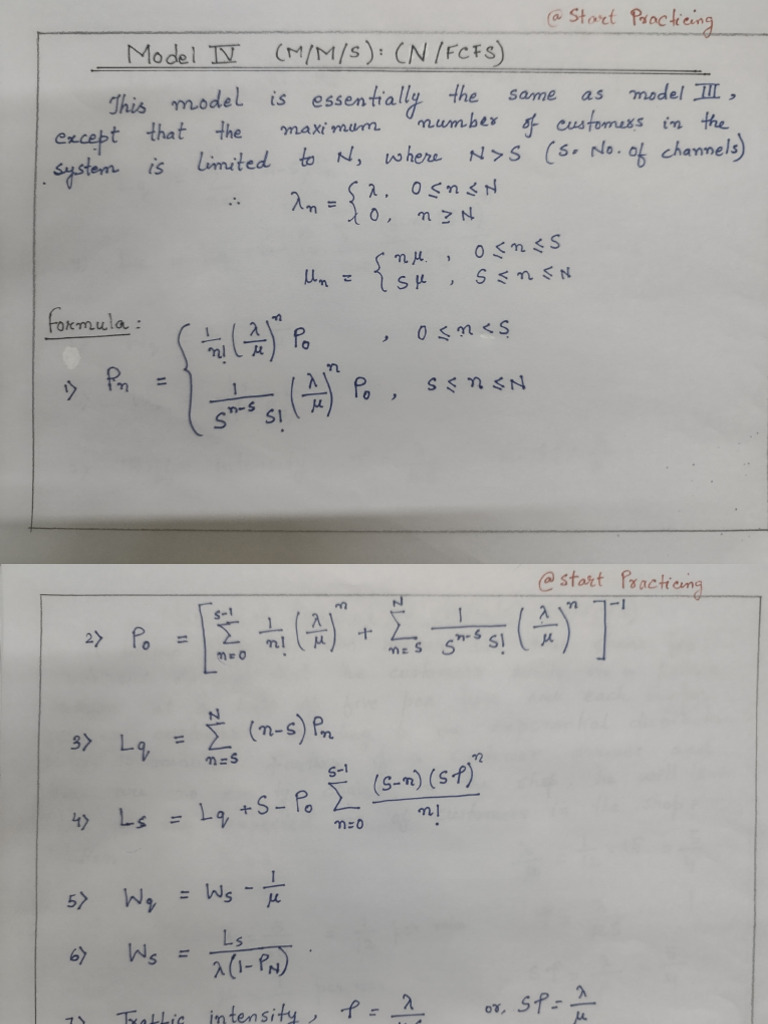 @ Start Practicing
Model IV (M/M/S): (N/FCFS)
This model is essentially the same as model III,
except that the maximum number of customers in the
system is limited to N, where N>S (S. No. of channels)
∴ λn = { λ. 0 ≤ n ≤ N
0, n ≥ N
μn = { nμ , 0 ≤ n ≤ S
Sμ , S ≤ n ≤ N
Formula:
1) Pn = { 1/n! (λ/μ)^n P0 , 0 ≤ n < S
1/(S^(n-s) S!) (λ/μ)^n P0 , S ≤ n ≤ N
@ Start Practicing
2) P0 = [ Σ_{n=0}^{S-1} 1/n! (λ/μ)^n + Σ_{n=S}^{N} 1/(S^(n-s) S!) (λ/μ)^n ]^-1
3) Lq = Σ_{n=S}^{N} (n-s) Pn
4) Ls = Lq + S - P0 Σ_{n=0}^{S-1} (S-n) (Sρ)^n / n!
5) Wq = Ws - 1/μ
6) Ws = Ls / λ(1-PN) .
7) Traffic intensity, ρ = λ/ or, Sρ = λ/μ